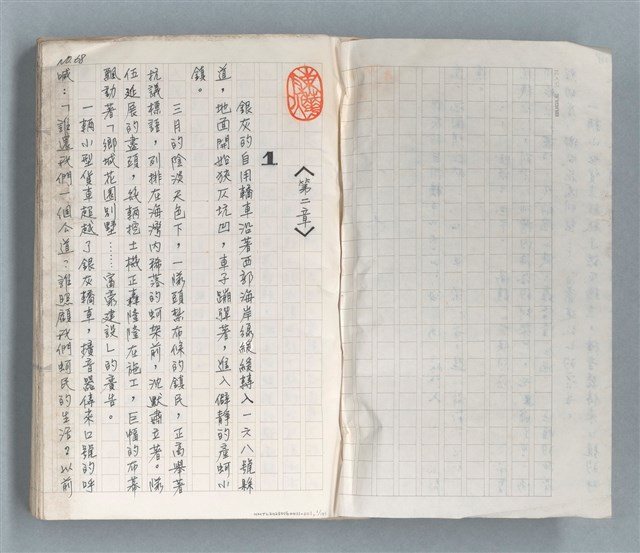 NO.68
〈第二章〉
1
銀灰的自用轎車沿著西部海岸線緩緩轉入一六八號縣
道，地面開始狹仄坑凹，車子蹦躍著，進入僻靜的產蚵小
鎮。
三月的陰淡天色下，一隊頭紮布條的鎮民，正高舉著
抗議標語，列排在海灣內稀落的蚵架前，沈默肅立著。隊
伍延展的盡頭，幾輛挖土機正轟隆隆在施工，巨幅的布幕
飄動著「鄉城花園別墅……富豪建設」的廣告。
一輛小型貨車超越了銀灰轎車，擴音器傳來口號的呼
喊：「誰還我們一個公道？誰照顧我們蚵民的生活？以前